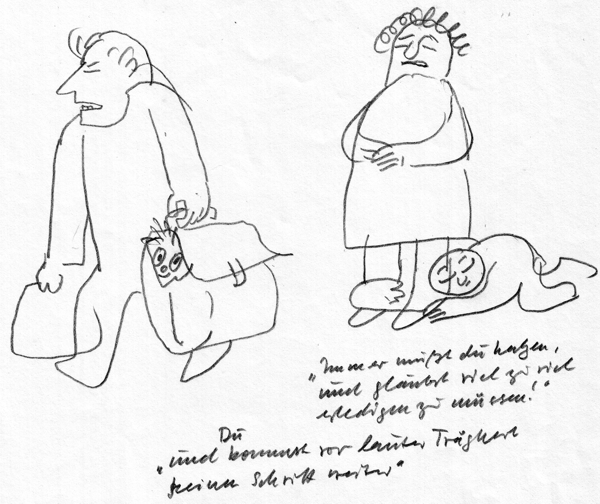 „Immer mußt du hetzen,
und glaubst viel zu viel
erledigen zu müssen!“
Du
„und kommst vor lauter Trägheit
keinen Schritt weiter“